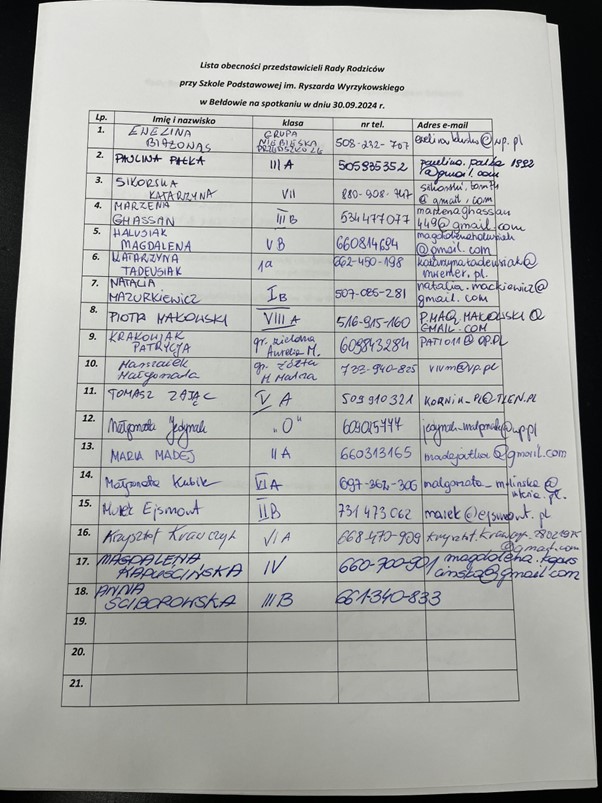 Lista obecności przedstawicieli Rady Rodziców
przy Szkole Podstawowej im. Ryszarda Wyrzykowskiego
w Bełdowie na spotkaniu w dniu 30.09.2024 r.
Lp. Imię i nazwisko klasa nr tel. Adres e-mail
1. EWELINA BIAZONAS GRUPA NIEBIESKA PRZEDSZKOLE 508-232-707 @wp.pl
2. PAULINA PAŁKA III A 505935352 paulina.palka 1992 @gmail.com
3. SIKORSKA KATARZYNA VII 880-908-747 @gmail.com
4. MARZENA GHASSAN III B 534477077 marzenaghassan 449@gmail.com
5. HALUSIAK MAGDALENA V B 660814694 magdalenahalusiak @gmail.com
6. KATARZYNA TADEUSIAK 1a 662-450-198 katarzynatadeusiak@
7. NATALIA MAZURKIEWICZ I B 507-086-281 natalia.mackiewicz@ gmail.com
8. PIOTR MAKOWSKI VIII A 516-915-160 P.MAQ.MAKOWSKI@ GMAIL.COM
9. KRAKOWIAK PATRYCJA gr. zielona Aurelia M. 609843284 PATI011@OP.PL
10. Małgorzata gr. żółta 723-940-825 vivm@vp.pl
11. TOMASZ ZAJĄC V A 509910321 KORNIK_P@TLEN.PL
12. Małgorzata Jedynak "O" 609045777
13. MARIA MADEJ II A 660313165 @gmail.com
14. Małgorzata Kubik VI A 697-362-306 malgorzata_mylinska@
15. Marek Ejsmont II B 731 473 062 marek@ejsmont.pl
16. Krzysztof Krawczyk VI A 668-470-909 @gmail.com
17. MAGDALENA KAPUŚCIŃSKA IV 660-700-901 magdalena.kapus cinska@gmail.com
18. ANNA ŚCIBOROWSKA III B 661-340-833
19.
20.
21.